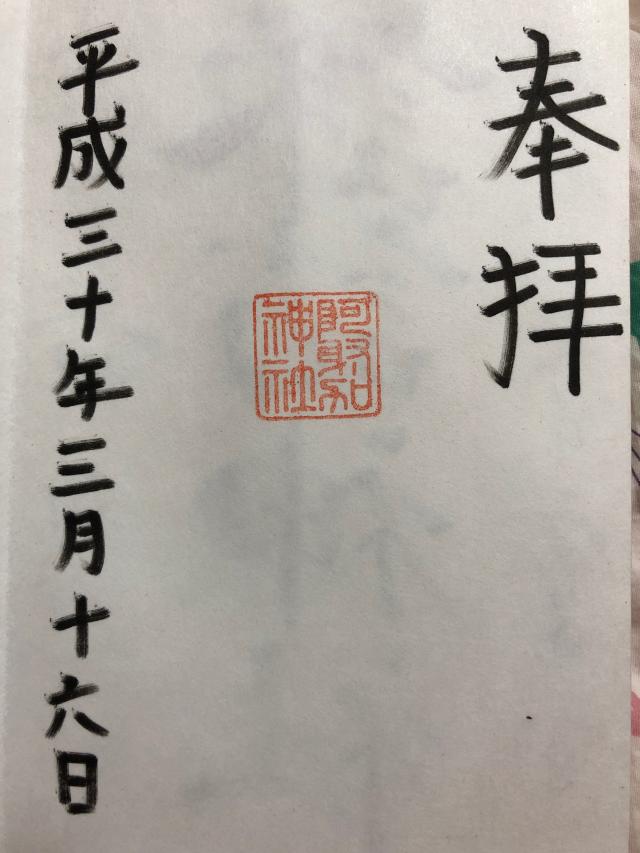 奉拝
阿
神社
平成三十年三月十六日